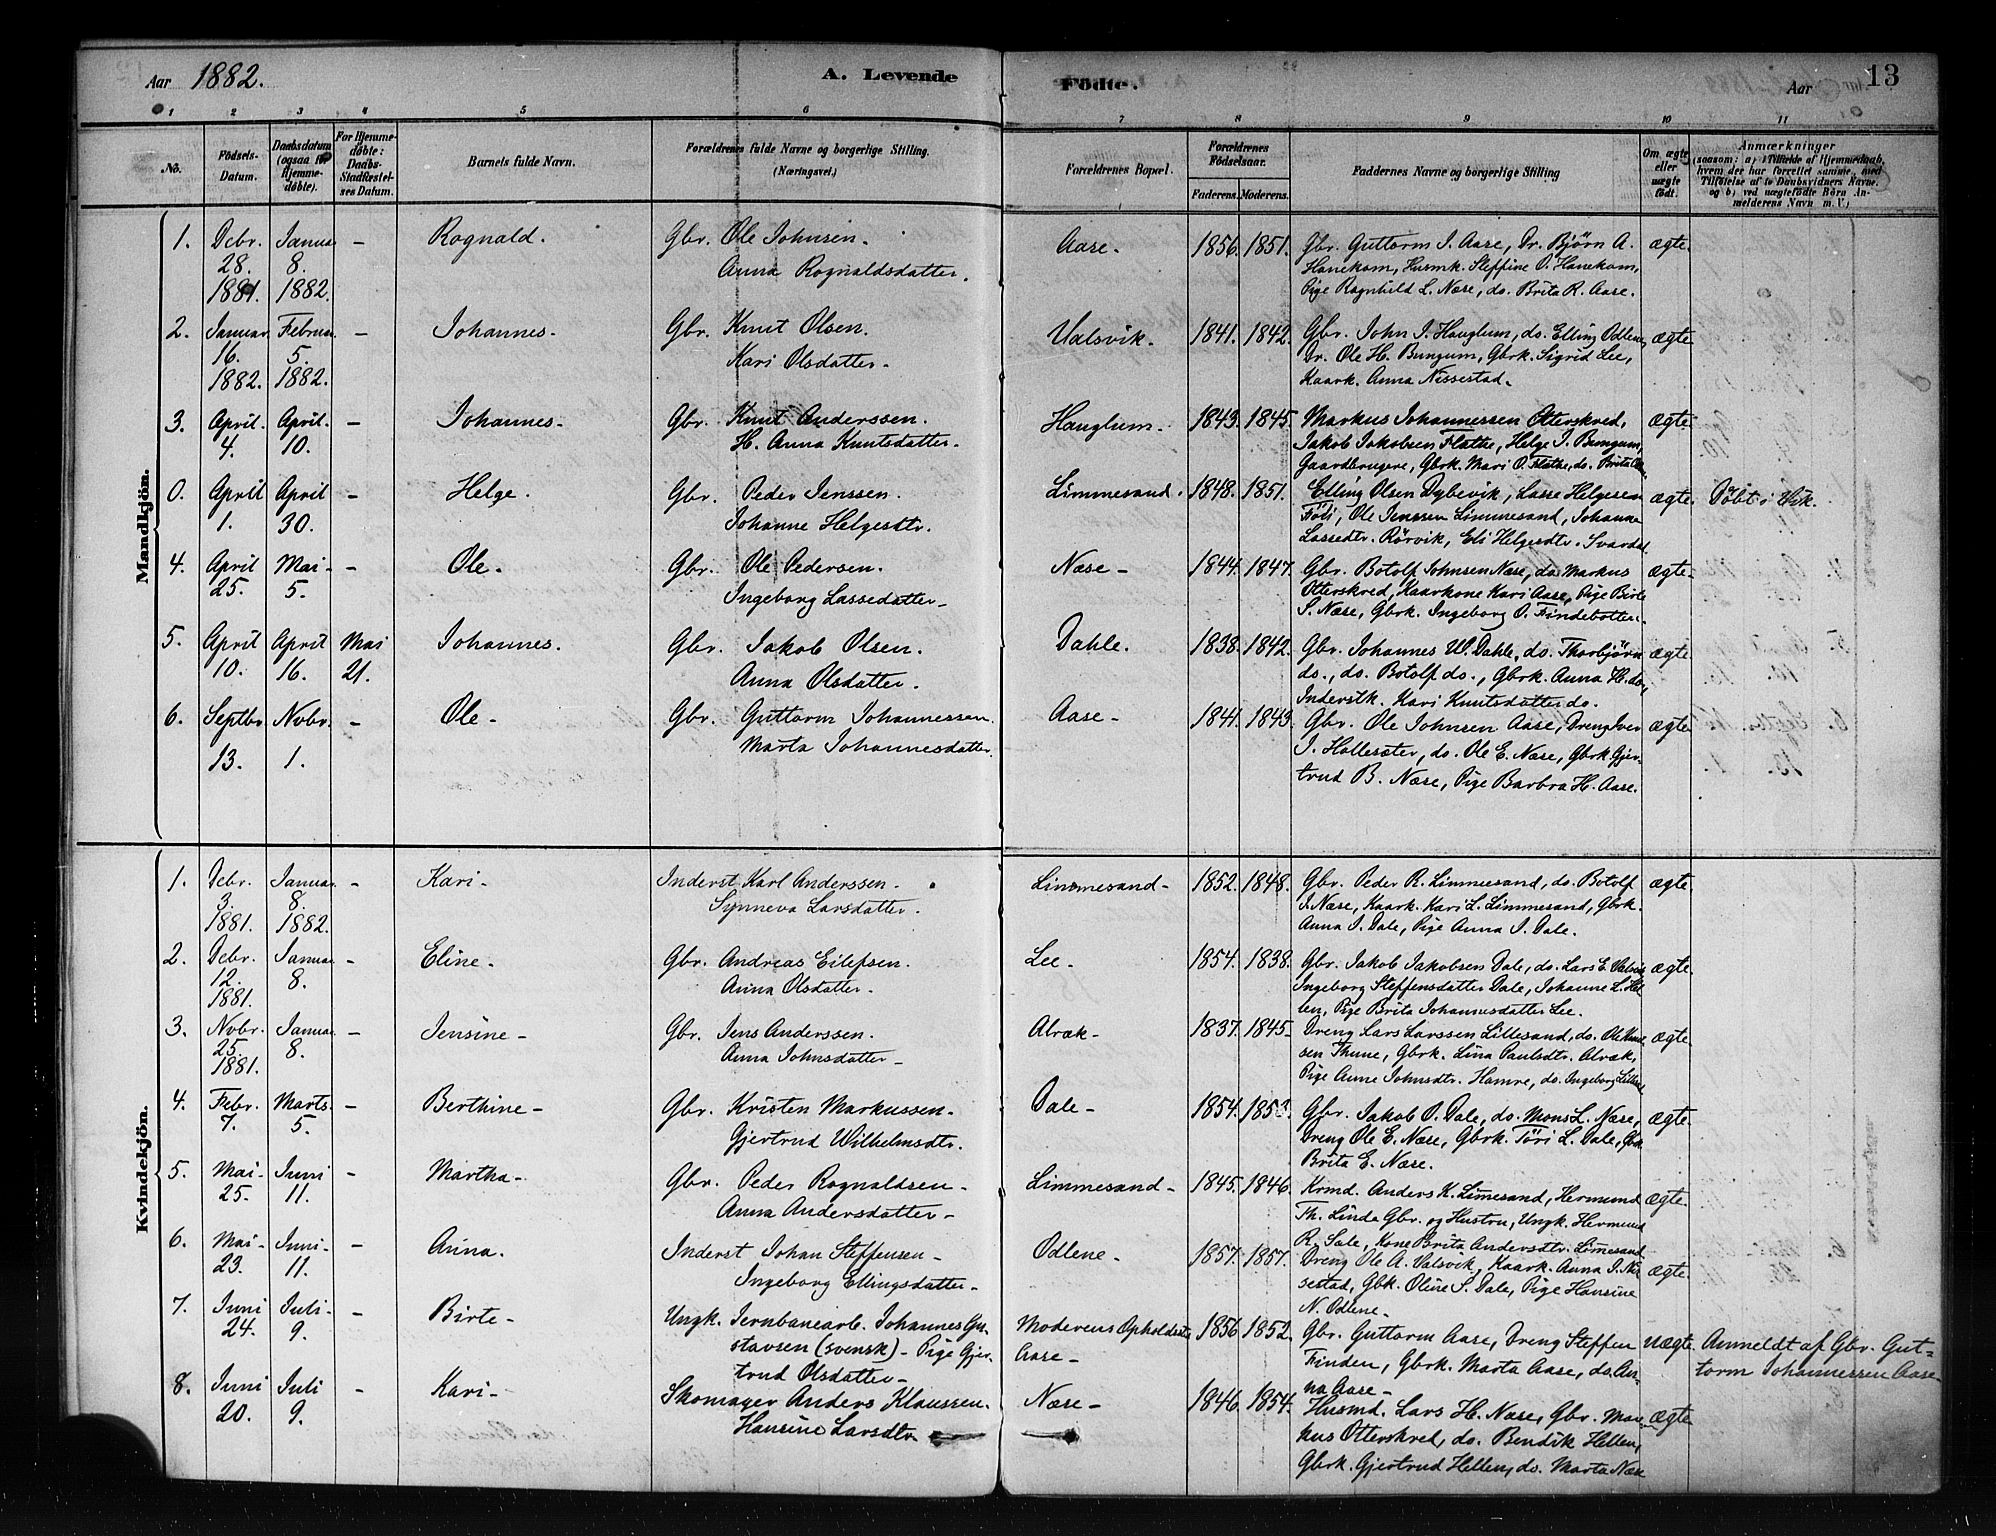 Aar 1882. A. Levende Födte. Aar 13
1 2 3 4 5 6 7 8 9 10 11
No. Födsels-Datum. Daabsdatum (ogsaa for Hjemme-döbte). For Hjemme-döbte: Daabs-Stadfæstel-ses Datum. Barnets fulde Navn. Forældrenes fulde Navne og borgerlige Stilling. (Næringsvei.) Forældrenes Bopæl. Forældrenes Födselsaar. Faderens. Moderens. Faddernes Navne og borgerlige Stilling Om ægte eller uægte födt. Anmærkninger (saasom: a) i Tilfælde af Hjemmedaab, hvem der har forrettet samme, med Tilföielse af to Daabsvidners Navne. og b) ved uægtefödte Börn An-melderens Navn m. V.)
Mandkjön.
1. Debr. Januar - Rognald. Gbr. Ole Johnsen. Aase. 1856. 1851. Gbr. Guttorm J. Aase, Dr. Bjørn A. ægte.
28. 8. Anna Rognaldsdatter. Hanekam, Husmk. Steffine O. Hanekam,
1881. 1882. Pige Ragnhild L. Næse, do. Brita R. Aase.
2. Januar. Februar. - Johannes. Gbr. Knut Olsen. Valsvik. 1841. 1842. Gbr. John I. Hauglum, do. Elling Odlene, ægte.
16. 5. Kari Olsdatter. Dr. Ole H. Bungum, Gbrk. Sigrid Lee,
1882. 1882. Kaark. Anna Nissestad.
3. April. April. - Johannes. Gbr. Knut Anderssen. Hauglum. 1843. 1845. Markus Johannessen Otterskred, ægte.
4. 10. H. Anna Knutsdatter. Jakob Jakobsen Flathe, Helge J. Bungum,
Gaardbrugere, Gbrk. Mari O. Flathe, do. Brita
0. April April - Helge. Gbr. Peder Jenssen. Limmesand. 1848. 1851. Elling Olsen Dybevik, Lasse Helgesen ægte. Döbt i Vik.
1. 30. Johanne Helgesdtr. Föli, Ole Jenssen Limmesand, Johanna
Lassedtr. Rörvik, Eli Helgesdtr. Svardal
4. April Mai - - Ole. Gbr. Ole Pedersen. Næse - 1844. 1847. Gbr. Botolf Johnsen Næse, do. Markus ægte.
25. 5. Ingeborg Lassedatter. Otterskred, Kaarkone Kari Aase, Pige Birte
S. Næse, Gbrk. Ingeborg O. Findebotten.
5. April April Mai Johannes. Gbr. Jakob Olsen. Dahle. 1838. 1842. Gbr. Johannes W. Dahle, do. Thorbjörn ægte.
10. 16. 21. Anna Olsdatter. do., do. Botolf do., Gbrk. Anna H. do.,
Inderstk. Kari Knutsdatter do.
6. Septbr. Novbr. - Ole - Gbr. Guttorm Johannessen. Aase - 1841. 1843. Gbr. Ole Johnsen Aase, Dreng Iver ægte
13. 1. Marta Johannesdatter J. Hallesæter, do. Ole E. Næse, Gbrk Gjer-
trud B. Næse, Pige Barbra H. Aase.
Kvindekjön.
1. Debr. Januar. - Kari - Inderst Karl Anderssen. Limmesand - 1852. 1848. Gbr. Peder R. Limmesand, do. Botolf ægte.
3. 8. Synneva Larsdatter. J. Næse, Kaark. Kari L. Limmesand, Gbrk.
1881. 1882. Anna J. Dale, Pige Anna J. Dale.
2. Debr. Januar. - Eline. Gbr. Andreas Eilefsen. Lee. 1854. 1838. Gbr. Jakob Jakobsen Dale, do. Lars E. Valsvik, ægte.
12. 8. Anna Olsdatter. Ingeborg Steffensdatter Dale, Johanne L. Hel-
1881. len, Pige Brita Johannesdatter Lee.
3. Novbr. Januar - Jensine - Gbr. Jens Anderssen. Alræk - 1837. 1845. Dreng Lars Larssen Lillesand, do. Ole Knud- ægte.
25. 8. Anna Johnsdatter - sen Thune, Gbrk. Lina Paulsdtr. Alræk,
1881. Pige Anne Johnsdtr. Hamre, do. Ingeborg
4. Febr. Marts - Berthine - Gbr. Kristen Markussen - Dale - 1854. 1853. Gbr. Jakob O. Dale, do. Mons L. Næse, ægte.
7. 5. Gjertrud Wilhelmsdtr. Dreng Ole E. Næse, Gbrk. Töri L. Dale, Gbrk.
Brita E. Næse.
5. Mai - Juni - Martha - Gbr. Peder Rognaldsen - Limmesand - 1845. 1846. Krmd. Anders K. Limesand, Hermund ægte.
25. 11. Anna Andersdatter - Th. Linda Gbr. og Hustru, Ungk. Hermund
R. Sale, Kone Brita Andersdtr. Limesand
6. Mai - Juni - - Anna. Inderst Johan Steffensen - Odlene - 1857. 1857. Dreng Ole A. Valsvik, Kaark. Anna J. Nis- ægte.
23. 11. Ingeborg Ellingsdatter - sestad, Gbk. Oline S. Dale, Pige Hansine
N. Odlene -
7. Juni Juli - - Birte - Ungk. Jernbanearb. Johannes Gu- Moderens Opholdsst. 1856 1852. Gbr. Guttorm Aase, Dreng Steffen uægte. Anmeldt af Gbr. Gut-
24. 9. stavsen (svensk) - Pige Gjer- Aase - Finden, Gbrk. Marta Aase, do. An- torm Johannessen Aase
trud Olsdatter - na Aase -
8. Juni Juli - Kari - Skomager Anders Klaussen. Næse - 1846. 1854. Husmd. Lars H. Næse, Gbr. Mar- ægte
20. 9. Hansine Larsdtr. kus Otterskred, do. Bendik Hellen,
Gbrk. Gjertrud Hellen, do. Marta Næse